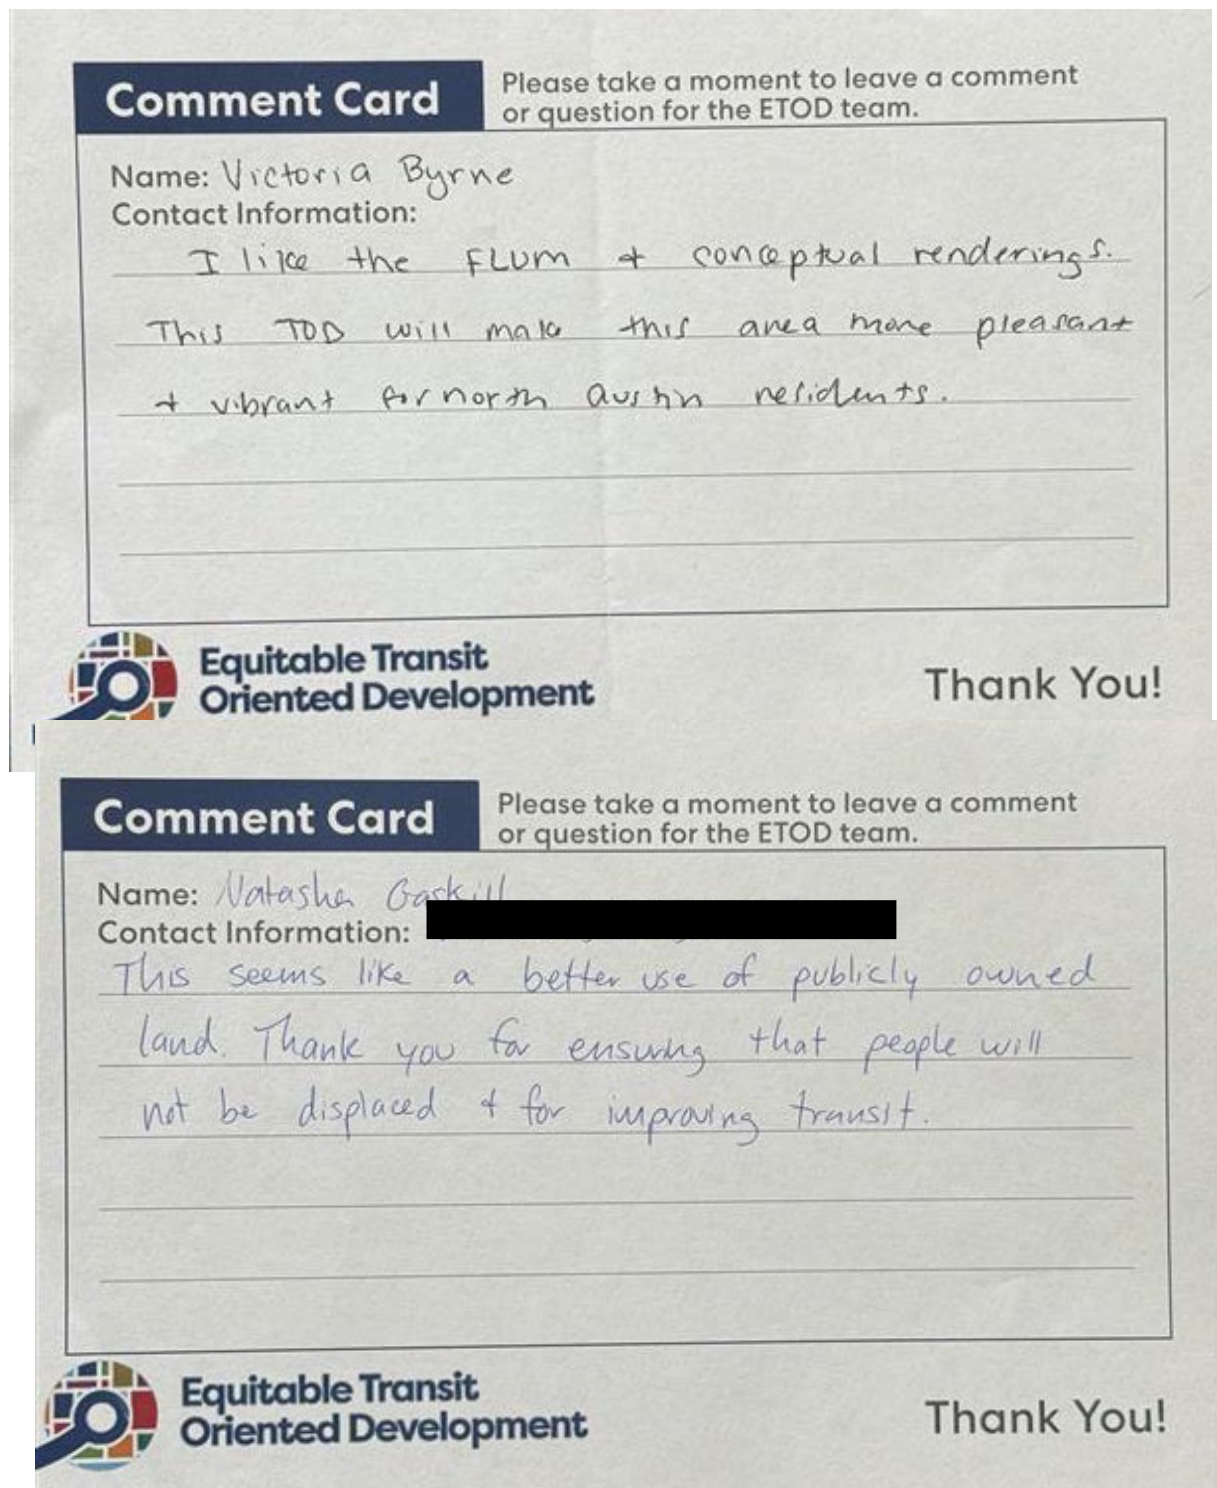 Comment Card
Please take a moment to leave a comment
or question for the ETOD team.
Name: Victoria Byrne
Contact Information:
I like the FLUM + conceptual renderings.
This TOD will make this area more pleasant
+ vibrant for north austin residents.
Equitable Transit
Oriented Development
Thank You!
Comment Card
Please take a moment to leave a comment
or question for the ETOD team.
Name: Natasha Gaskill
Contact Information:
This seems like a better use of publicly owned
land. Thank you for ensuring that people will
not be displaced + for improving transit.
Equitable Transit
Oriented Development
Thank You!